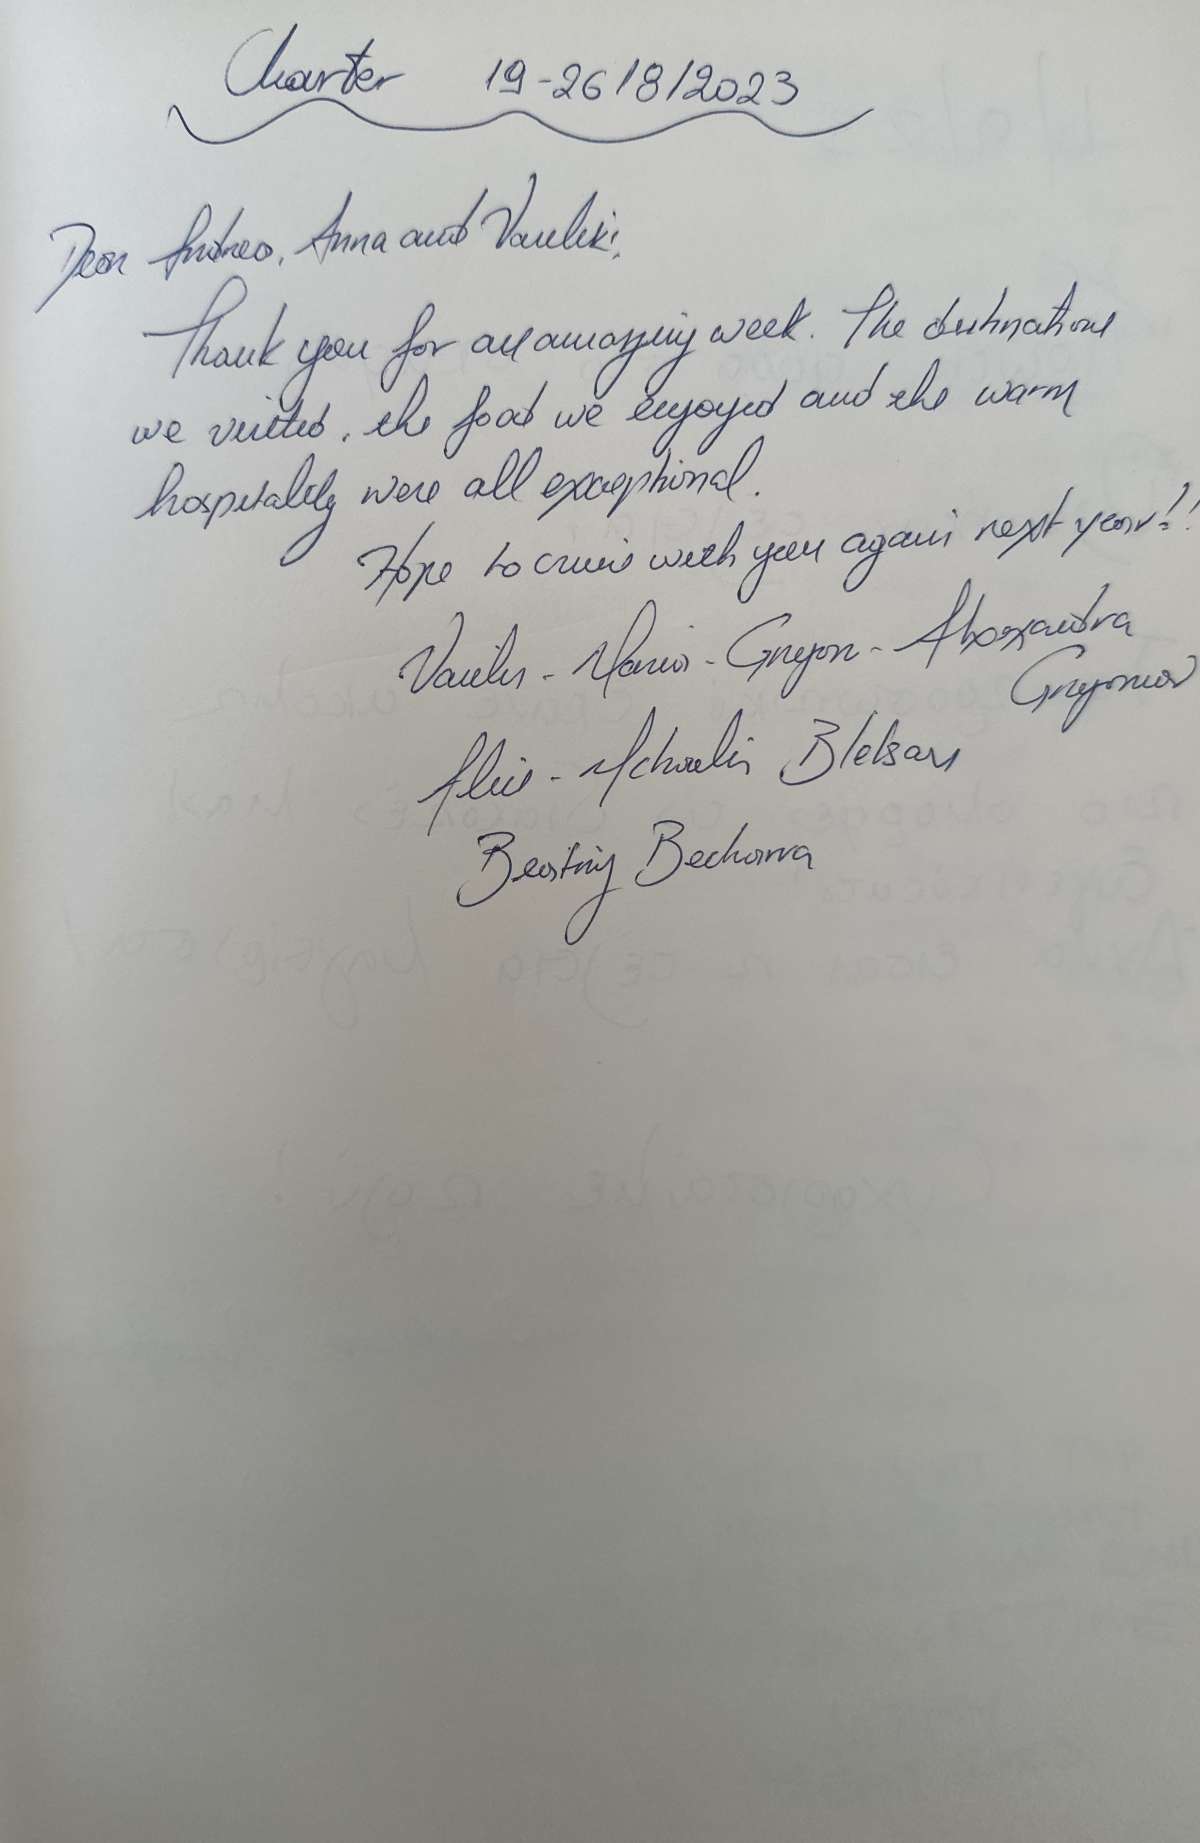 Charter 19-26/8/2023
Dear Andrea, Anna and Vasiliki,
Thank you for an amazing week. The destinations
we visited, the food we enjoyed and the warm
hospitality were all exceptional.
Hope to cruise with you again next year!!
Vasilis - Maria - Grigoris - Alexandra
Michaelis
Beatriz Bechara